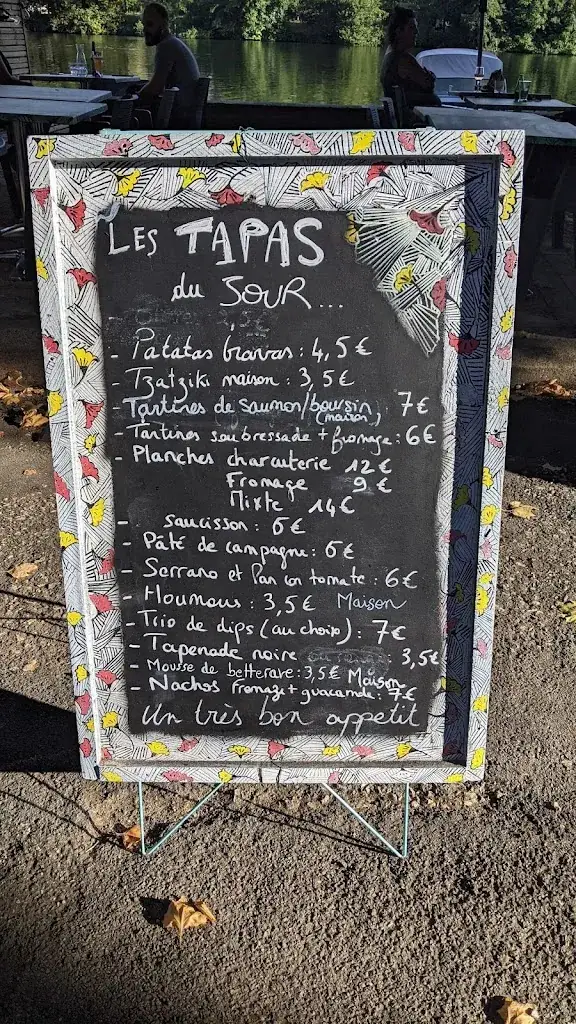 LES TAPAS
du JOUR...
- Patatas bravas : 4,5€
- Tzatziki maison : 3,5€
- Tartines de saumon/boursin, 7€
(maison)
- Tartines soubressade + fromage : 6€
- Planches charcuterie 12€
Fromage 9€
Mixte 14€
- saucisson : 6€
- Pâté de campagne : 6€
- Serrano et Pan con tomate : 6€
- Houmous : 3,5€ Maison
- Trio de dips (au choix) : 7€
- Tapenade noire 3,5€
- Mousse de betterave : 3,5€ Maison
- Nachos fromage + guacamole : 7€
Un très bon appetit